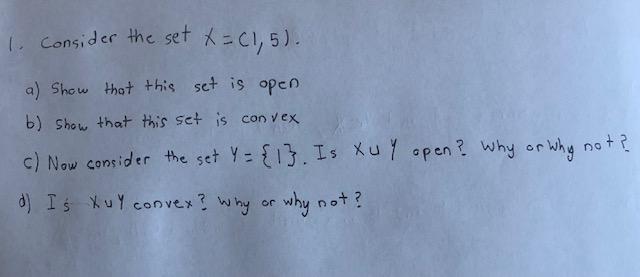 1. Consider the set X = (1, 5).
a) Show that this set is open
b) Show that this set is convex
c) Now consider the set Y = {1}. Is X ∪ Y open? Why or why not?
d) Is X ∪ Y convex? Why or why not?